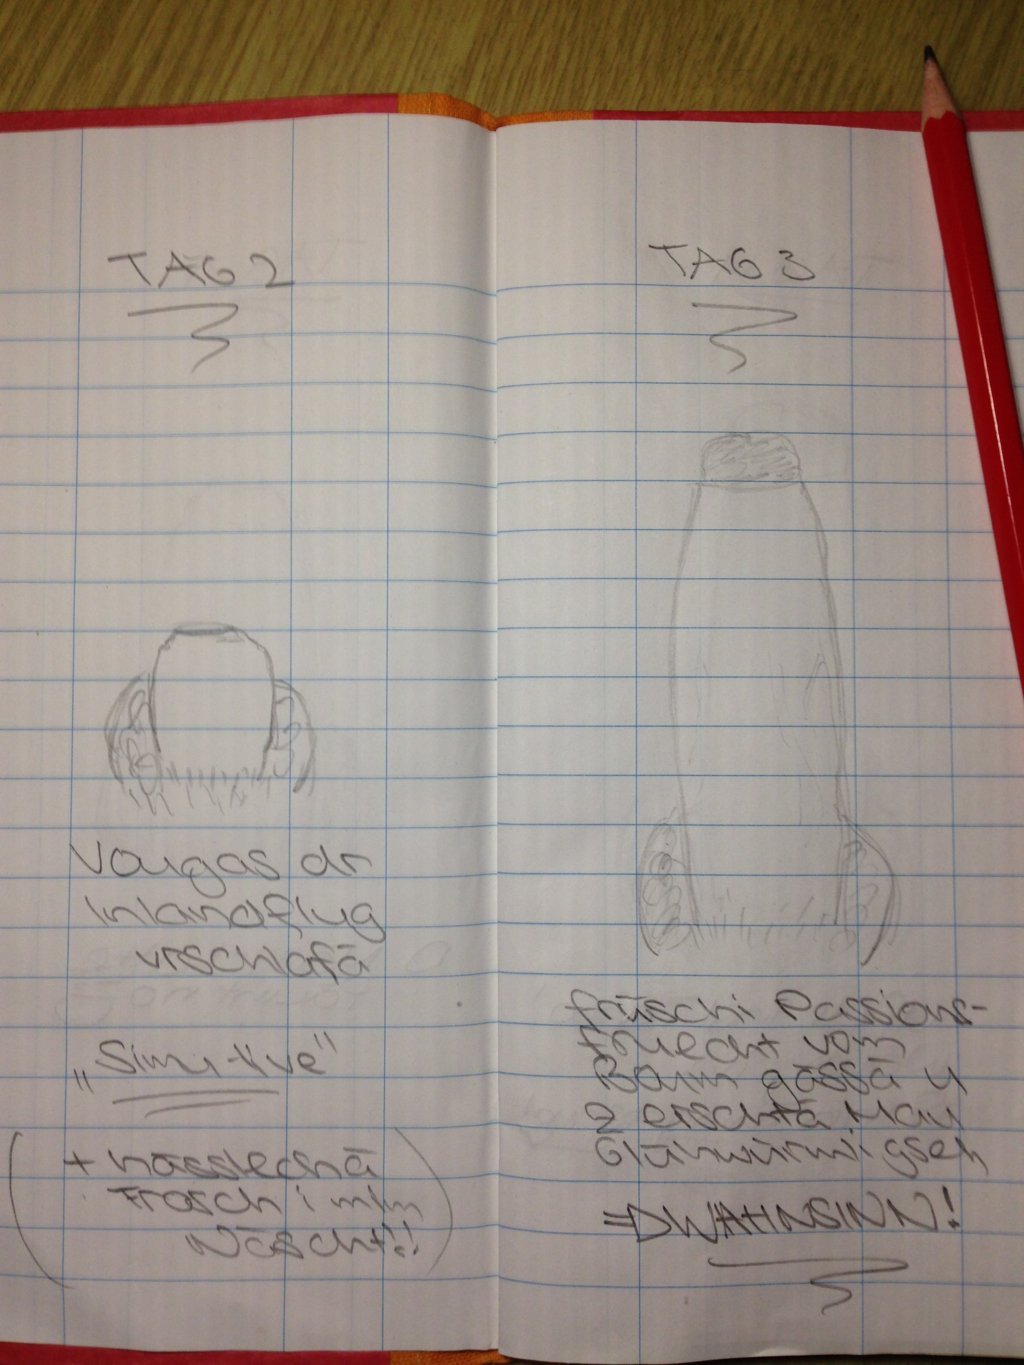 TAG 2
Vougas dr
Inlandflug
vrschlafä
+ hässlechä
Frosch i mim
Näscht!!
TAG 3
früschi Passions-
früecht vom
Boum gässä u
z erschtä Mau
Glühwürmi gseh
=> WAHNSINN!